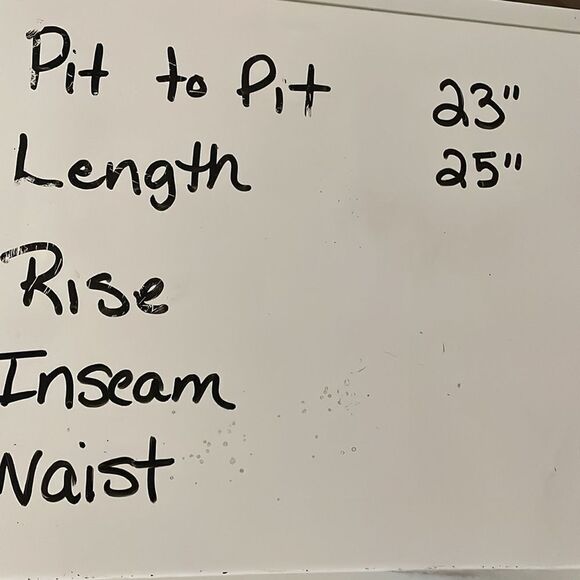 Pit to Pit 23"
Length 25"
Rise
Inseam
Waist